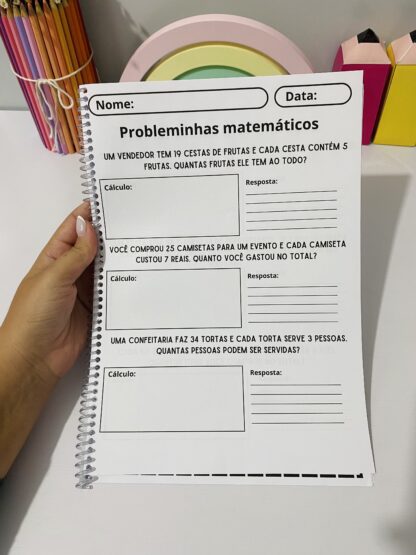 Nome:
Data:
Probleminhas matemáticos
UM VENDEDOR TEM 19 CESTAS DE FRUTAS E CADA CESTA CONTÉM 5
FRUTAS. QUANTAS FRUTAS ELE TEM AO TODO?
Cálculo:
Resposta:
VOCÊ COMPROU 25 CAMISETAS PARA UM EVENTO E CADA CAMISETA
CUSTOU 7 REAIS. QUANTO VOCÊ GASTOU NO TOTAL?
Cálculo:
Resposta:
UMA CONFEITARIA FAZ 34 TORTAS E CADA TORTA SERVE 3 PESSOAS.
QUANTAS PESSOAS PODEM SER SERVIDAS?
Cálculo:
Resposta: